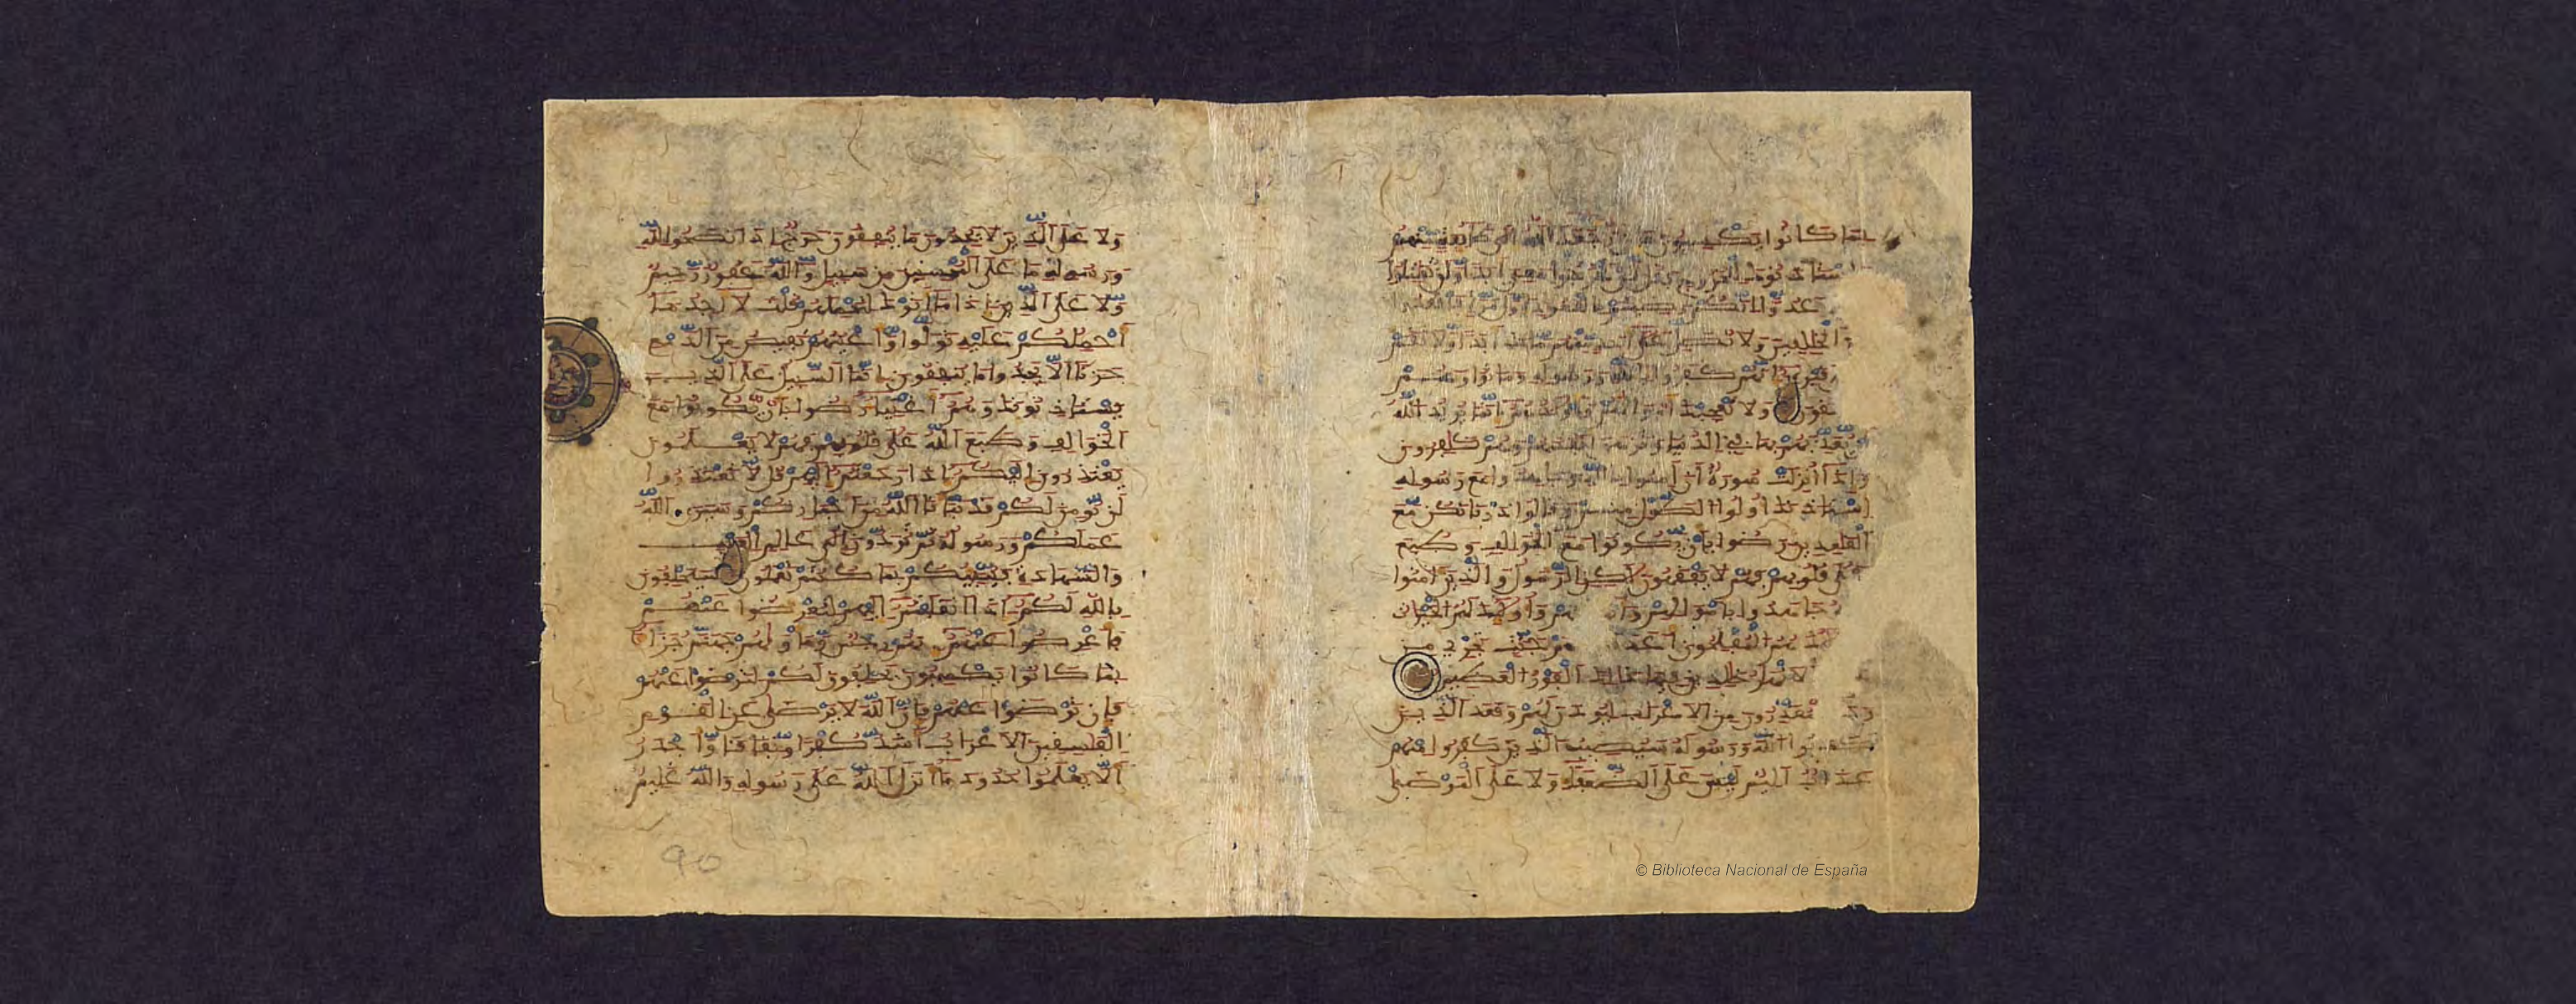 بما كانوا يكسبون فإن رجعك الله إلى طآئفة منهم
فاستئذنوك للخروج فقل لن تخرجوا معي أبدا ولن تقتلوا
عدوا إنكم رضيتم بالقعود أول مرة فاقعدوا
الخلفين ولا تصل على أحد منهم مات أبدا ولا تقم
قبره إنهم كفروا بالله ورسوله وماتوا وهم
ولا تعجبك أمولهم وأولدهم إنما يريد الله
يعذبهم بها في الدنيا وتزهق أنفسهم وهم كفرون
وإذا أنزلت سورة أن امنوا بالله وجهدوا مع رسوله
استئذنك أولوا الطول منهم وقالوا ذرنا نكن مع
القعدين رضوا بأن يكونوا مع الخوالف وطبع
على قلوبهم فهم لا يفقهون لكن الرسول والذين امنوا
جهدوا بأمولهم وأنفسهم وأولئك لهم الخيرات
هم المفلحون أعد لهم جنت تجري من
الأنهر خلدين فيها ذلك الفوز العظيم
وجاء المعذرون من الأعراب ليوذن لهم وقعد الذين
كذبوا الله ورسوله سيصيب الذين كفروا منهم
عذاب أليم ليس على الضعفاء ولا على المرضى
ولا على الذين لا يجدون ما ينفقون حرج إذا نصحوا لله
ورسوله ما على المحسنين من سبيل والله غفور رحيم
ولا على الذين إذا ما أتوك لتحملهم قلت لا أجد ما
أحملكم عليه تولوا وأعينهم تفيض من الدمع
حزنا ألا يجدوا ما ينفقون إنما السبيل على الذين
يستئذنونك وهم أغنياء رضوا بأن يكونوا مع
الخوالف وطبع الله على قلوبهم فهم لا يعلمون
يعتذرون إليكم إذا رجعتم إليهم قل لا تعتذروا
لن نومن لكم قد نبأنا الله من أخباركم وسيرى الله
عملكم ورسوله ثم تردون إلى علم الغيب
والشهدة فينبئكم بما كنتم تعملون سيحلفون
بالله لكم إذا انقلبتم إليهم لتعرضوا عنهم
فأعرضوا عنهم إنهم رجس ومأويهم جهنم جزاء
بما كانوا يكسبون يحلفون لكم لترضوا عنهم
فإن ترضوا عنهم فإن الله لا يرضى عن القوم
الفسقين الأعراب أشد كفرا ونفاقا وأجدر
ألا يعلموا حدود ما أنزل الله على رسوله والله عليم
90
© Biblioteca Nacional de España